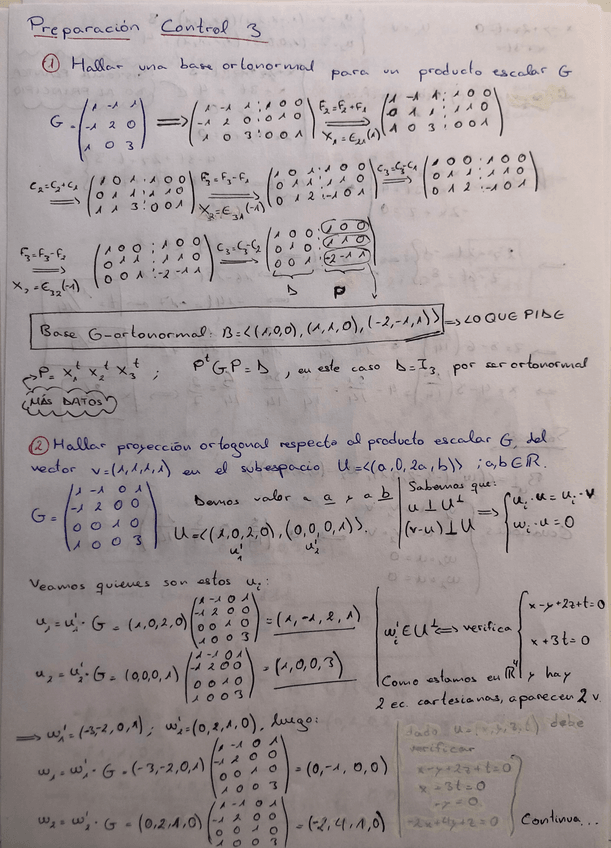 Preparación Control 3
① Hallar una base ortonormal para un producto escalar G
G= (1 -1 1; -1 2 0; 1 0 3) ⟹ (1 -1 1 ⋮ 1 0 0; -1 2 0 ⋮ 0 1 0; 1 0 3 ⋮ 0 0 1) F₂=F₂+F₁ ⟹ X₁=E₂₁(1) (1 -1 1 ⋮ 1 0 0; 0 1 1 ⋮ 1 1 0; 1 0 3 ⋮ 0 0 1)
C₂=C₂+C₁ ⟹ (1 0 1 ⋮ 1 0 0; 0 1 1 ⋮ 1 1 0; 1 1 3 ⋮ 0 0 1) F₃=F₃-F₁ ⟹ X₂=E₃₁(-1) (1 0 1 ⋮ 1 0 0; 0 1 1 ⋮ 1 1 0; 0 1 2 ⋮ -1 0 1) C₃=C₃-C₁ ⟹ (1 0 0 ⋮ 1 0 0; 0 1 1 ⋮ 1 1 0; 0 1 2 ⋮ -1 0 1)
F₃=F₃-F₂ ⟹ X₃=E₃₂(-1) (1 0 0 ⋮ 1 0 0; 0 1 1 ⋮ 1 1 0; 0 0 1 ⋮ -2 -1 1) C₃=C₃-C₂ ⟹ (1 0 0 ⋮ 1 0 0; 0 1 0 ⋮ 1 1 0; 0 0 1 ⋮ -2 -1 1)
D P
Base G-ortonormal: B=<(1,0,0), (1,1,0), (-2,-1,1)> ⟹ LO QUE PIDE
P= X₁ᵗ X₂ᵗ X₃ᵗ ; PᵗGP=D , en este caso D=I₃ por ser ortonormal
MÁS DATOS
② Hallar proyección ortogonal respecto al producto escalar G, del
vector v=(1,1,1,1) en el subespacio U=<(a,0,2a,b)> ; a,b∈ℝ.
G= (1 -1 0 1; -1 2 0 0; 0 0 1 0; 1 0 0 3)
Demos valor a a y a b
U=<(1,0,2,0), (0,0,0,1)>.
u₁' u₂'
Sabemos que:
u ⊥ U⊥
(v-u) ⊥ U
⟹ { uᵢ·u = uᵢ·v
wᵢ·u = 0
Veamos quienes son estos uᵢ:
u₁=u₁'·G = (1,0,2,0) (1 -1 0 1; -1 2 0 0; 0 0 1 0; 1 0 0 3) = (1,-1,2,1)
u₂=u₂'·G = (0,0,0,1) (1 -1 0 1; -1 2 0 0; 0 0 1 0; 1 0 0 3) = (1,0,0,3)
wᵢ'∈U⊥ ⟺ verifica { x-y+2z+t=0
x+3t=0
Como estamos en ℝ⁴ y hay
2 ec. cartesianas, aparecen 2 v
⟹ w₁'=(-3,-2,0,1) ; w₂'=(0,2,1,0), luego:
w₁=w₁'·G=(-3,-2,0,1) (1 -1 0 1; -1 2 0 0; 0 0 1 0; 1 0 0 3) = (0,-1,0,0)
w₂=w₂'·G = (0,2,1,0) (1 -1 0 1; -1 2 0 0; 0 0 1 0; 1 0 0 3) = (-2,4,1,0)
debe
verificar
x-y+2z+t=0
x+3t=0
-y=0
-2x+4y+z=0
Continua...